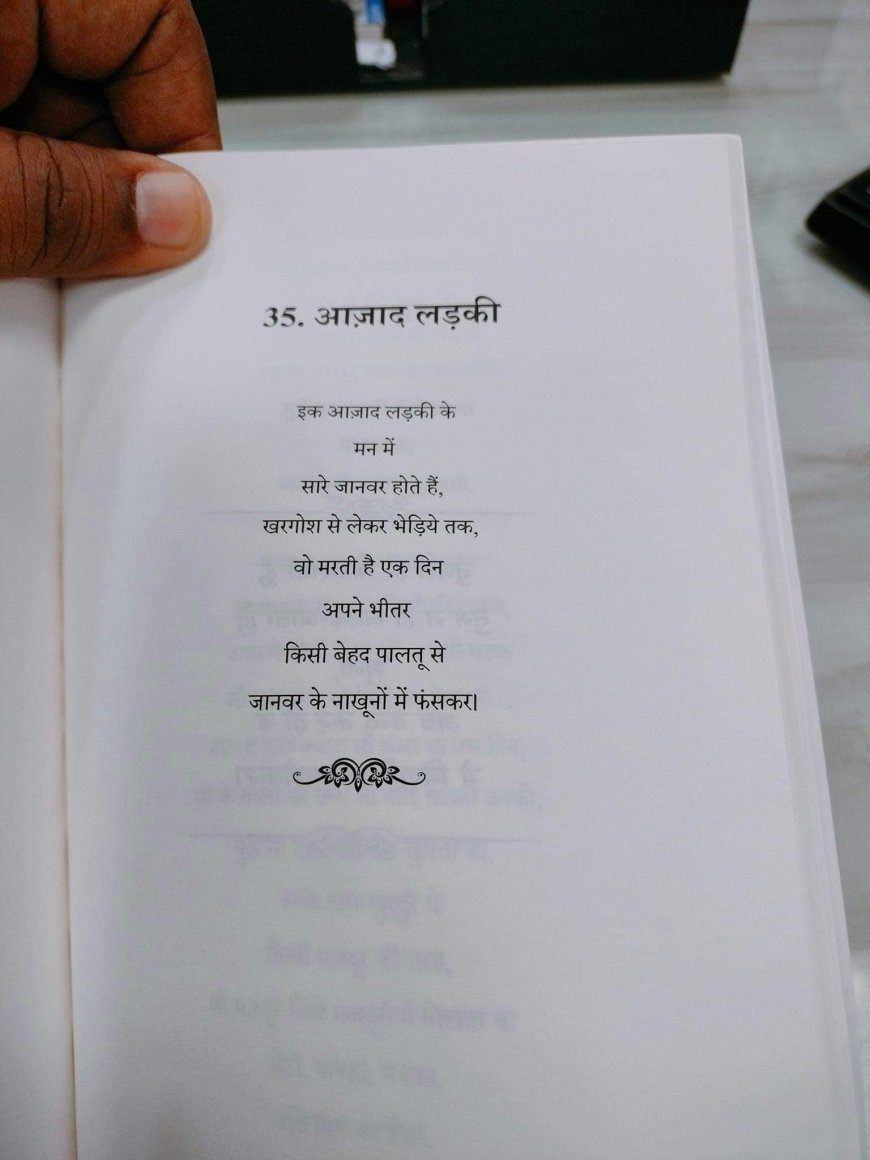 35. आज़ाद लड़की
इक आज़ाद लड़की के
मन में
सारे जानवर होते हैं,
खरगोश से लेकर भेड़िये तक,
वो मरती है एक दिन
अपने भीतर
किसी बेहद पालतू से
जानवर के नाखूनों में फंसकर।